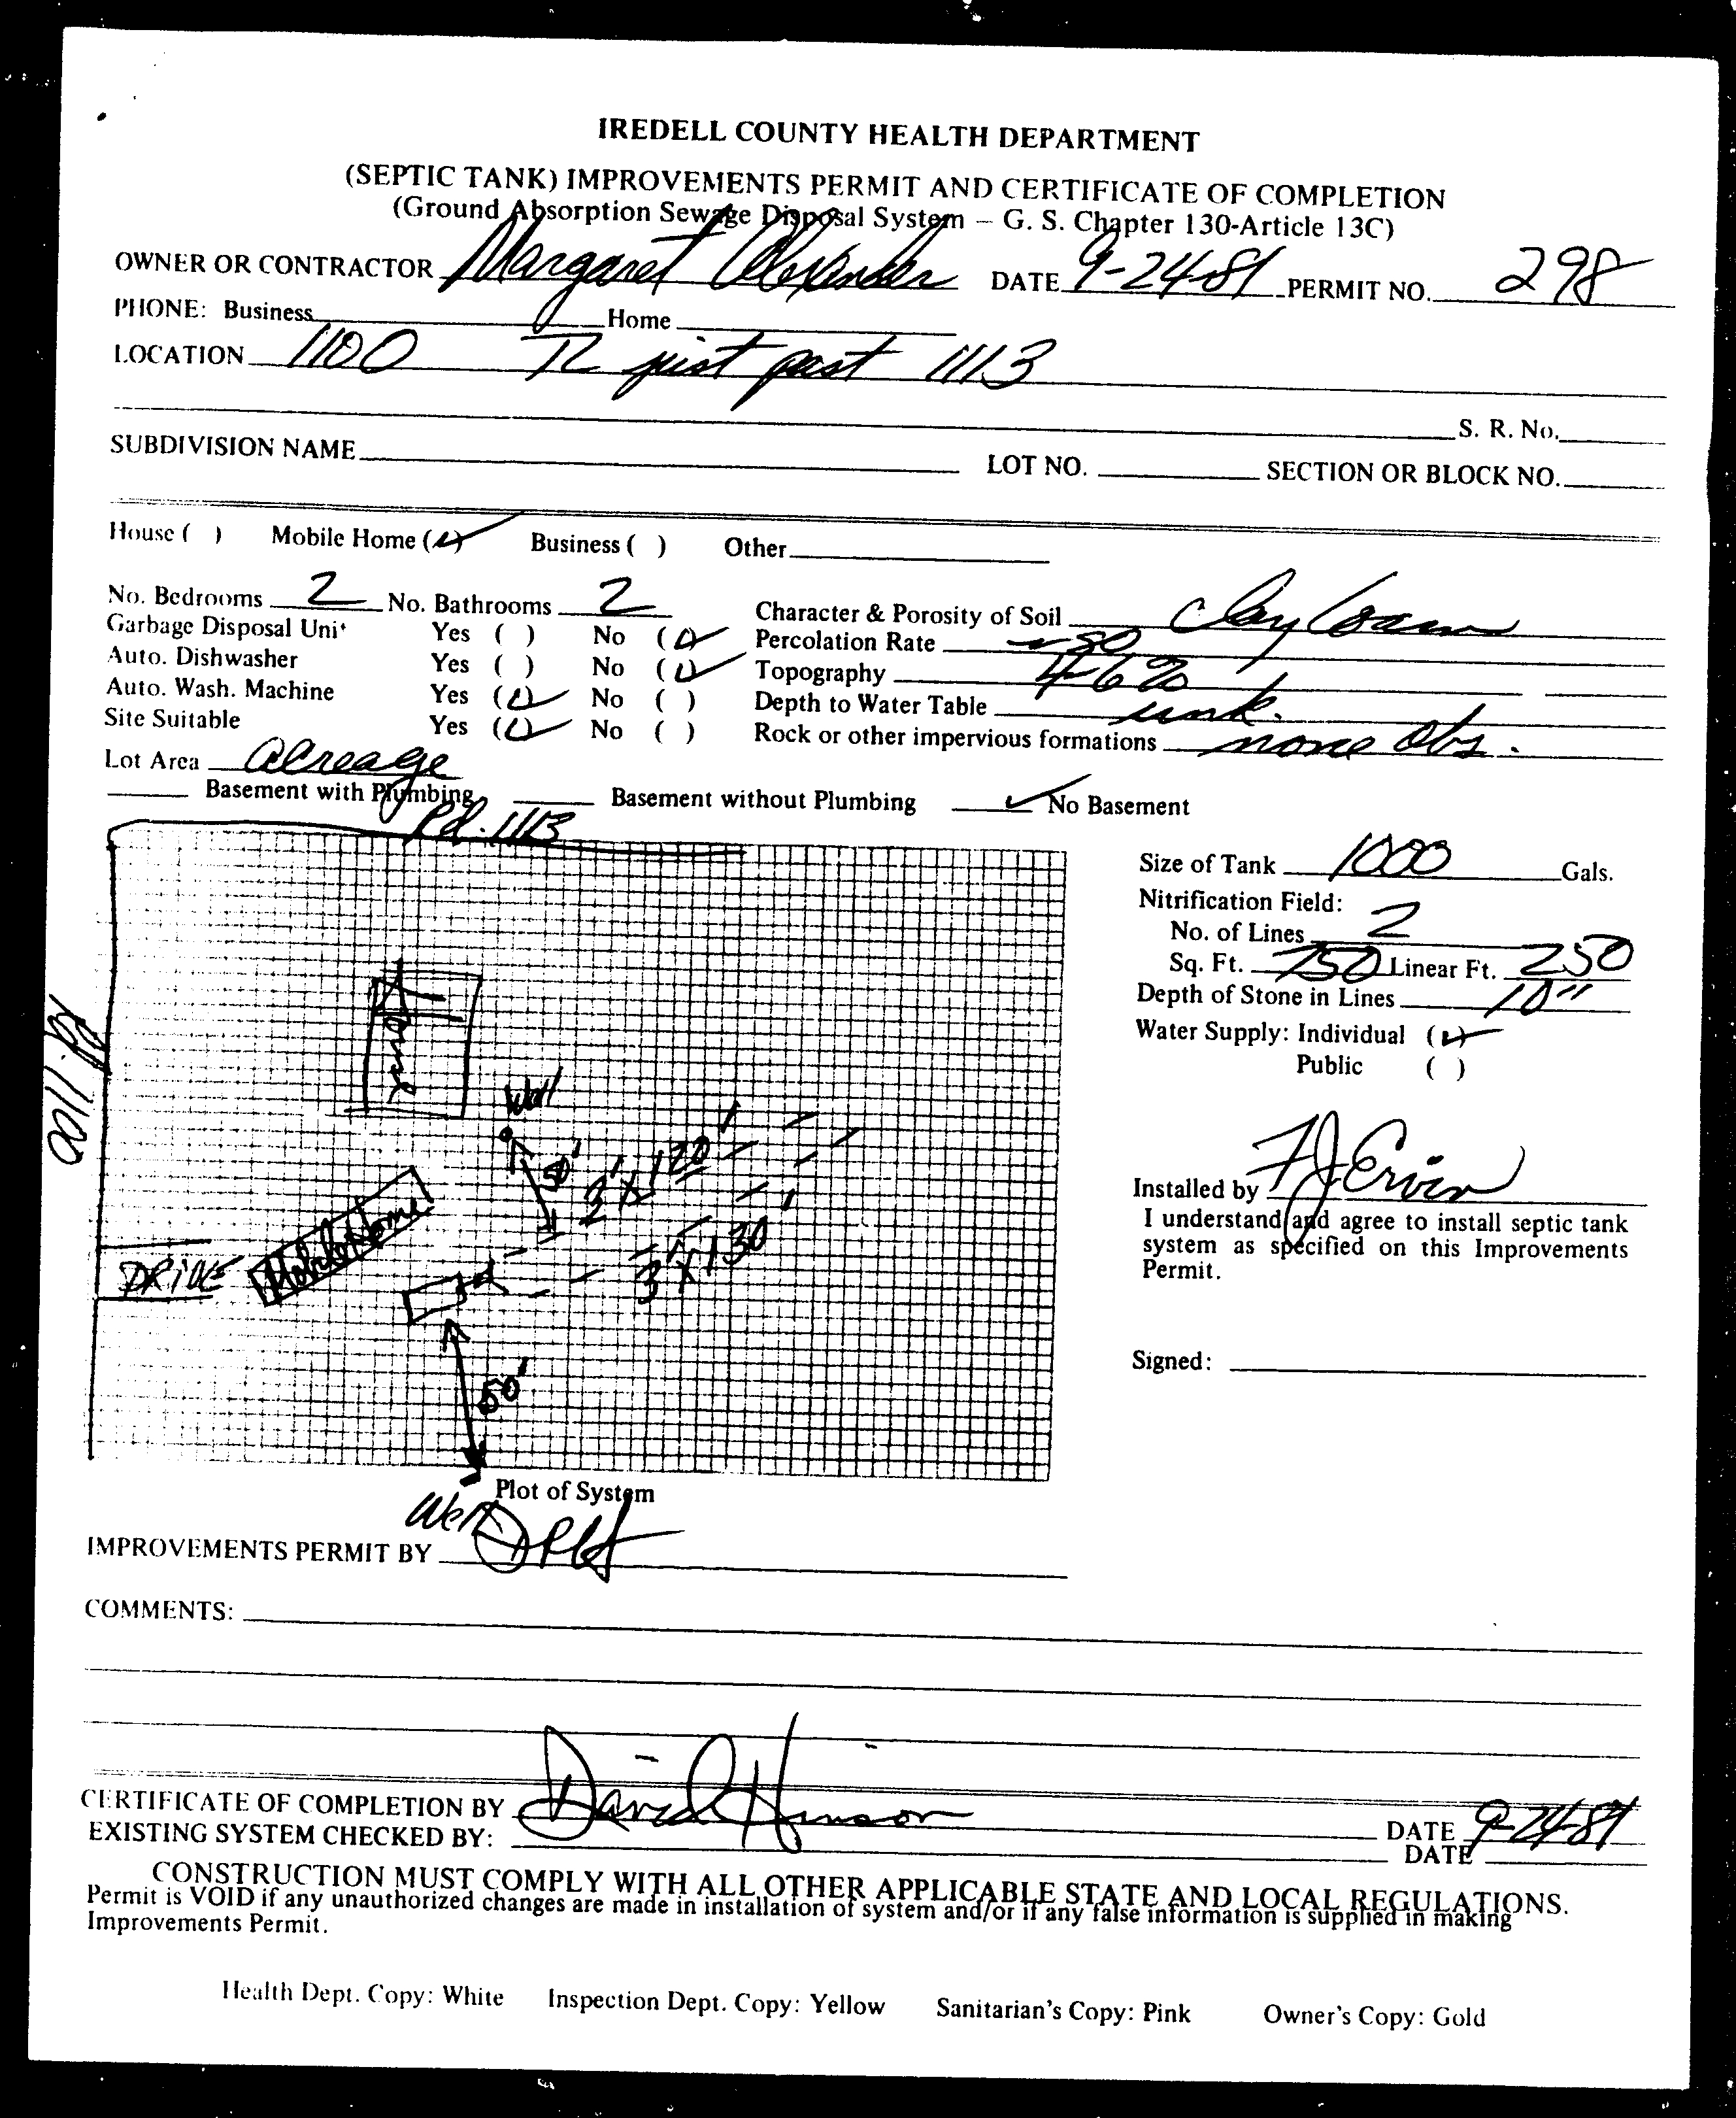 IREDELL COUNTY HEALTH DEPARTMENT
(SEPTIC TANK) IMPROVEMENTS PERMIT AND CERTIFICATE OF COMPLETION
(Ground Absorption Sewage Disposal System – G. S. Chapter 130-Article 13C)
OWNER OR CONTRACTOR Margaret Alexander DATE 9-24-81 PERMIT NO. 298
PHONE: Business Home
LOCATION 1100 TL just past 1113
S. R. No.
SUBDIVISION NAME LOT NO. SECTION OR BLOCK NO.
House ( ) Mobile Home (✓) Business ( ) Other
No. Bedrooms 2 No. Bathrooms 2 Character & Porosity of Soil Clay Loam
Garbage Disposal Unit Yes ( ) No (✓) Percolation Rate 50
Auto. Dishwasher Yes ( ) No (✓) Topography 4-6%
Auto. Wash. Machine Yes (✓) No ( ) Depth to Water Table unk.
Site Suitable Yes (✓) No ( ) Rock or other impervious formations none obs.
Lot Area Acreage
Basement with Plumbing Basement without Plumbing ✓ No Basement
Rd. 1113
Size of Tank 1000 Gals.
Nitrification Field:
No. of Lines 2
Sq. Ft. 750 Linear Ft. 250
Depth of Stone in Lines 10"
Water Supply: Individual (✓)
Public ( )
Rd. 1100
Home
Well
50'
3'x120'
3'x130'
Mobile Home
DRIVE
50'
Well
Installed by F J Ervin
I understand and agree to install septic tank
system as specified on this Improvements
Permit.
Signed:
Plot of System
IMPROVEMENTS PERMIT BY DPH
COMMENTS:
CERTIFICATE OF COMPLETION BY David Hinson DATE 9-24-81
EXISTING SYSTEM CHECKED BY: DATE
CONSTRUCTION MUST COMPLY WITH ALL OTHER APPLICABLE STATE AND LOCAL REGULATIONS.
Permit is VOID if any unauthorized changes are made in installation of system and/or if any false information is supplied in making
Improvements Permit.
Health Dept. Copy: White Inspection Dept. Copy: Yellow Sanitarian's Copy: Pink Owner's Copy: Gold